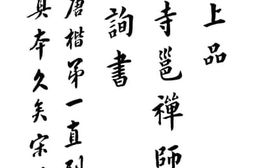 上品
寺邕禪師
詢書
唐楷第一直到
真本久矣宋